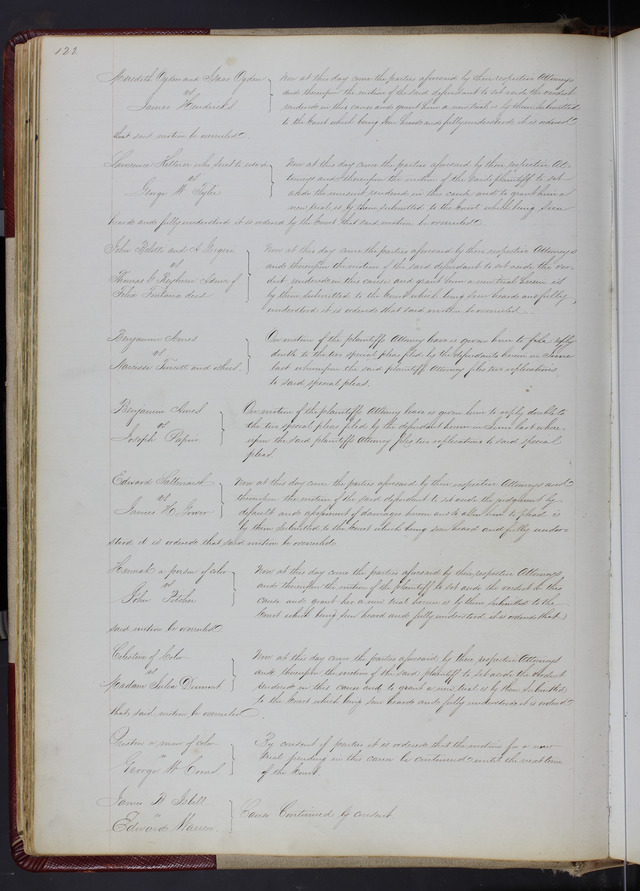 122.
Meredith Ogden and Isaac Ogden
vs
James Hendricks
Now at this day come the parties aforesaid by their respective Attorneys
and thereupon the motion of the said defendant to set aside the verdict
rendered in this cause and grant him a new trial is by them submitted
to the Court which being seen heard and fully understood it is ordered
that said motion be overruled.
Lawrence who sues to use
vs
George W.
Now at this day came the parties aforesaid by their respective At-
torneys and thereupon the motion of the said plaintiff to set
aside the nonsuit rendered in this cause and to grant him a
new trial is by them submitted to the Court which being seen
heard and fully understood it is ordered by the Court that said motion be overruled.
John and A
vs
Thomas C Admr of
Felix dec'd
Now at this day came the parties aforesaid by their respective Attorneys
and thereupon the motion of the said defendant to set aside the ver-
dict rendered in this cause and grant him a new trial herein is
by them submitted to the Court which being seen heard and fully
understood it is ordered that said motion be overruled.
Benjamin Ames
vs
Narcisse and others
On motion of the plaintiffs Attorney leave is given him to reply
double to the two special pleas filed by the defendants herein on
last whereupon the said plaintiffs Attorney files two replications
to said special pleas.
Benjamin Ames
vs
Joseph Papin
On motion of the plaintiffs Attorney leave is given him to reply double to
the two special pleas filed by the defendant herein on last where-
upon the said plaintiffs Attorney files two replications to said special
pleas.
Edward
vs
James H. Gower
Now at this day came the parties aforesaid by their respective Attorneys and
thereupon the motion of the said defendant to set aside the judgment by
default and assessment of damages herein and to allow him to plead is
by them submitted to the Court which being seen heard and fully under-
stood it is ordered that said motion be overruled.
Hannah a person of color
vs
John Pitcher
Now at this day came the parties aforesaid by their respective Attorneys
and thereupon the motion of the plaintiff to set aside the verdict in this
cause and grant her a new trial herein is by them submitted to the
Court which being seen heard and fully understood it is ordered that
said motion be overruled.
Celestine of Color
vs
Madame Julia Dumont
Now at this day came the parties aforesaid by their respective Attorneys
and thereupon the motion of the said plaintiff to set aside the verdict
rendered in this cause and to grant a new trial is by them submitted
to the Court which being seen heard and fully understood it is ordered
that said motion be overruled.
Preston a man of color
vs
George W Coons
By consent of parties it is ordered that the motion for a new
trial pending in this cause be continued until the next term
of the Court.
James R Isbell
vs
Edward Warren
Cause Continued by consent.